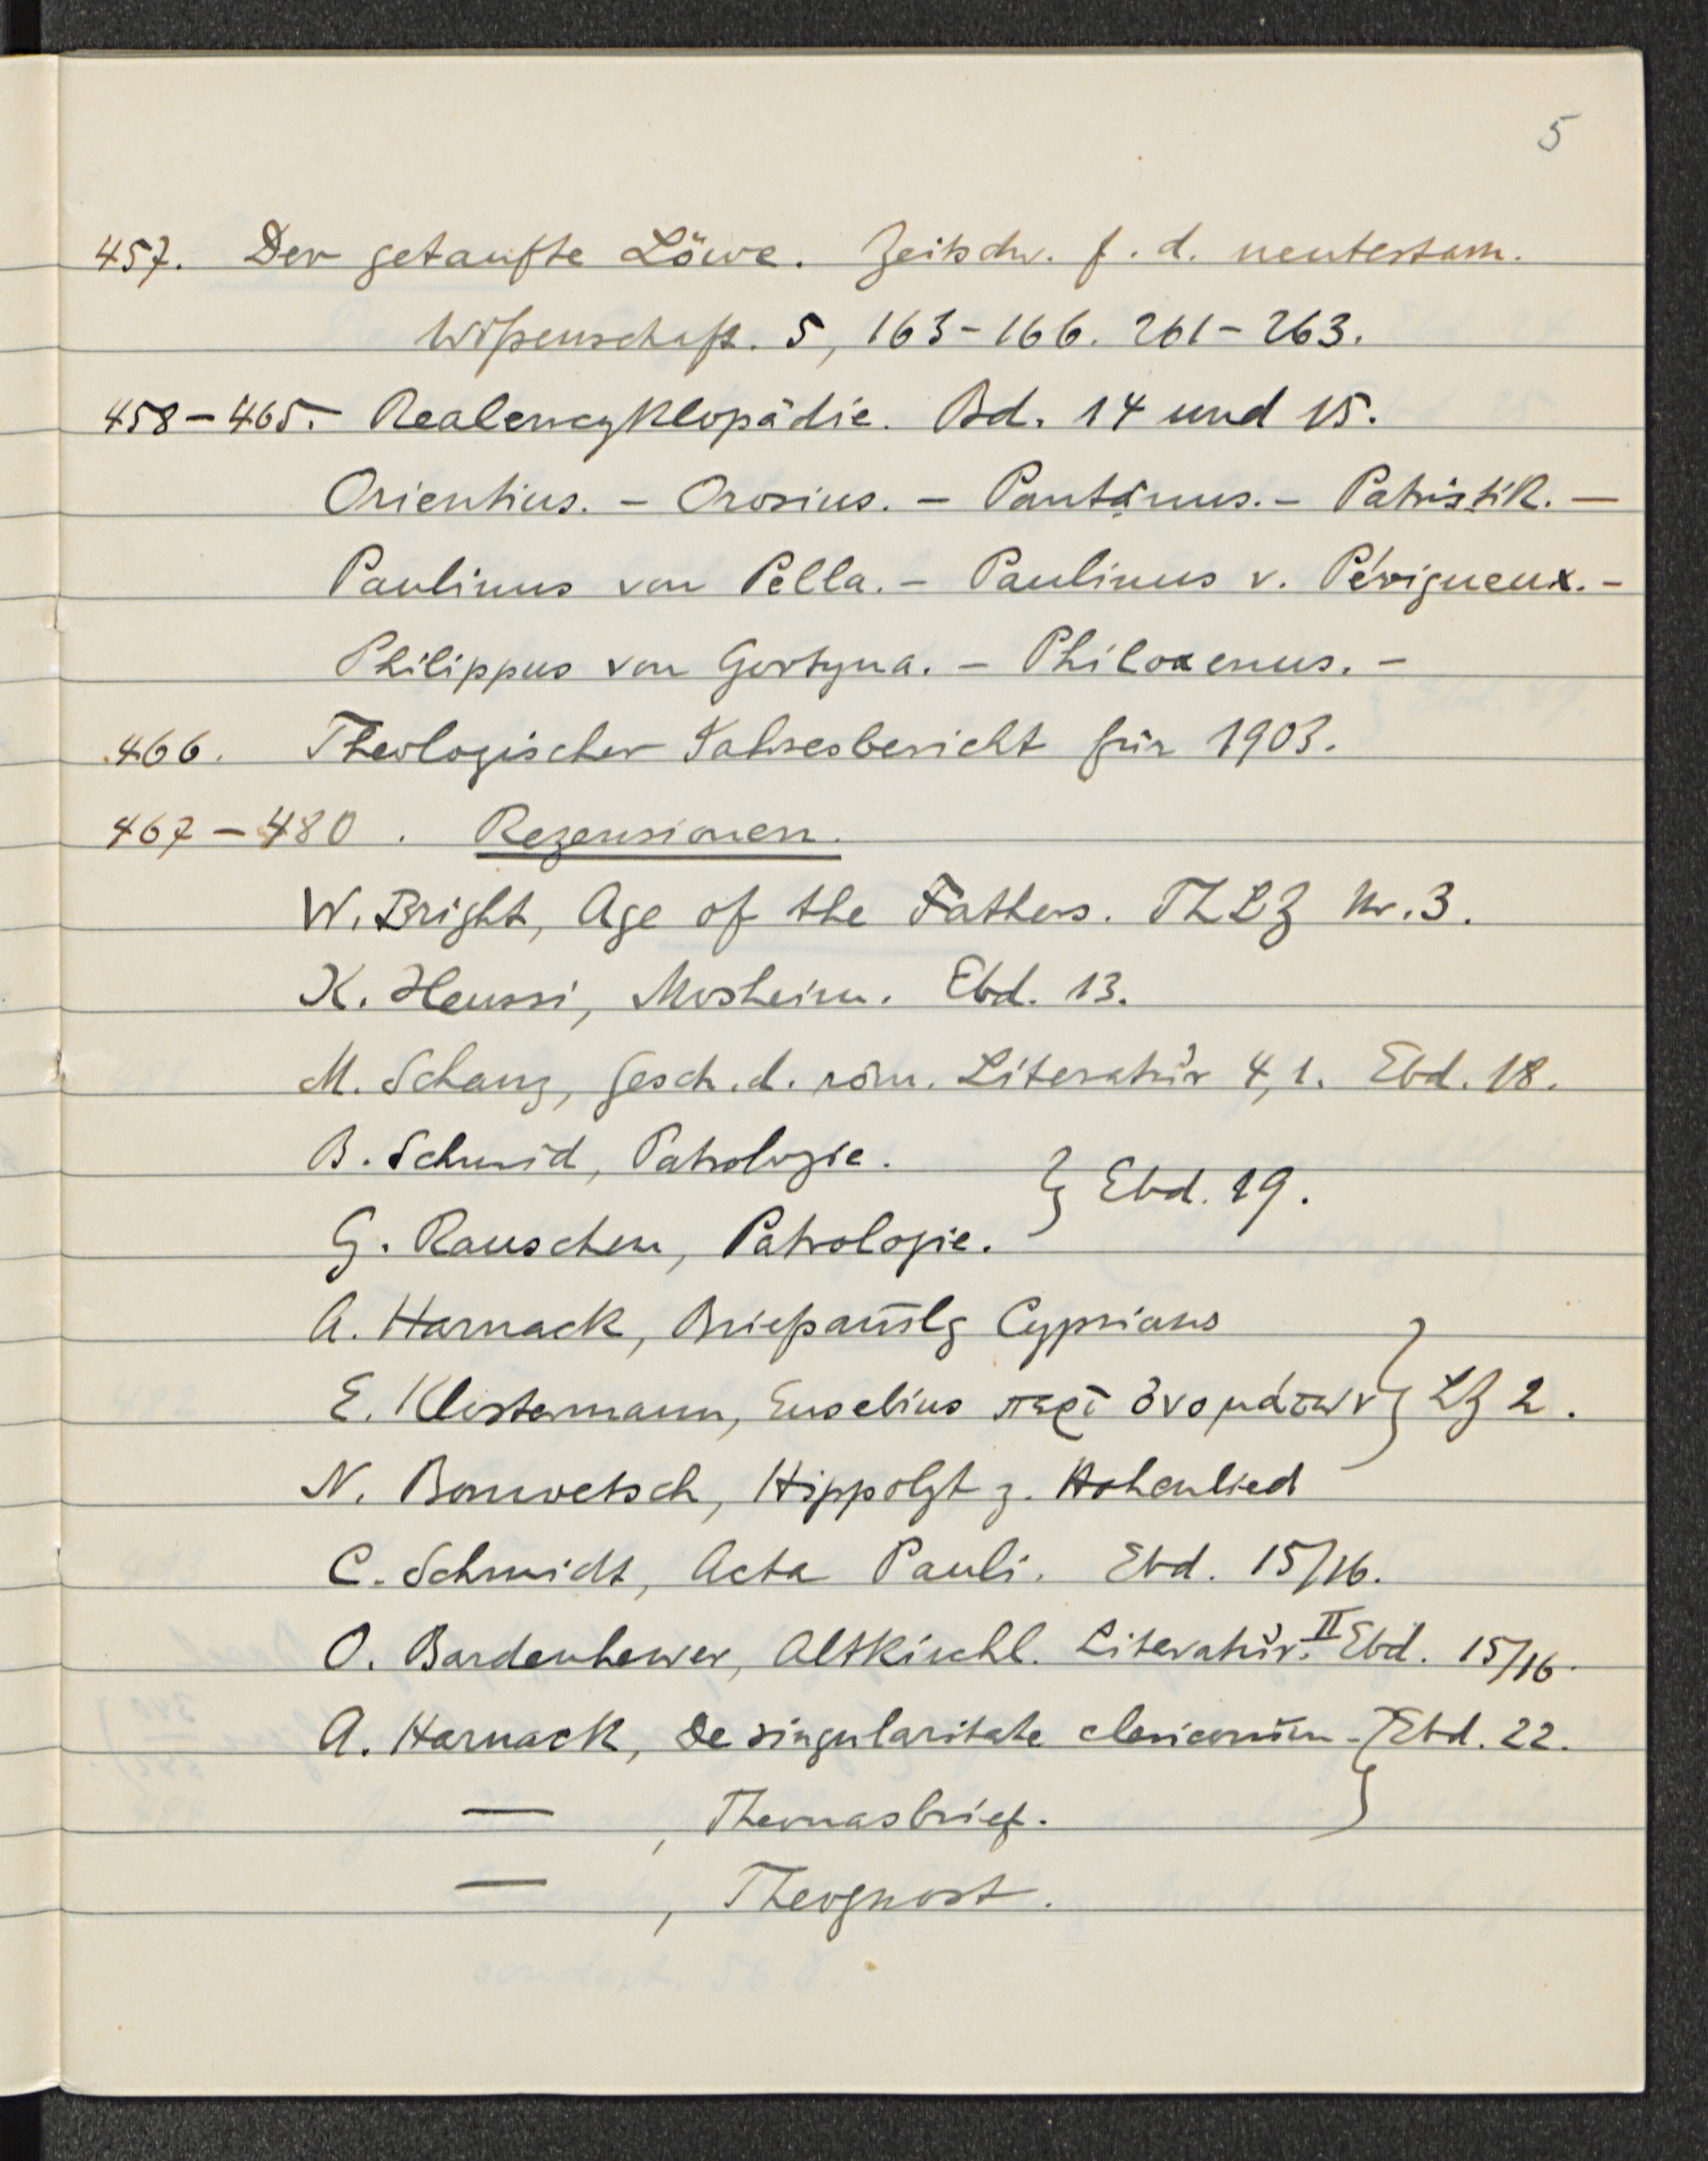 5
457. Der getaufte Löwe. Zeitschr. f. d. neutestam.
Wißenschaft. 5, 163-166. 261-263.
458-465. Realencyklopädie. Bd. 14 und 15.
Orientius. - Orosius. - Pantänus. - Patristik. -
Paulinus von Pella. - Paulinus v. Périgueux. -
Philippus von Gortyna. - Philoxenus. -
466. Theologischer Jahresbericht für 1903.
467-480. Rezensionen.
W. Bright, Age of the Fathers. ThLZ Nr. 3.
K. Heussi, Mosheim. Ebd. 13.
M. Schanz, Gesch. d. röm. Literatur 4, 1. Ebd. 18.
B. Schmid, Patrologie.
} Ebd. 19.
G. Rauschen, Patrologie.
A. Harnack, Briefsam̄lg Cyprians
E. Klostermann, Eusebius περὶ ὀνομάτων } LZ 2.
N. Bonwetsch, Hippolyt z. Hohenlied
C. Schmidt, Acta Pauli. Ebd. 15/16.
O. Bardenhewer, Altkirchl. Literatur. II Ebd. 15/16.
A. Harnack, De singularitate clericorum. } Ebd. 22.
— , Themasbrief.
— , Theognost.